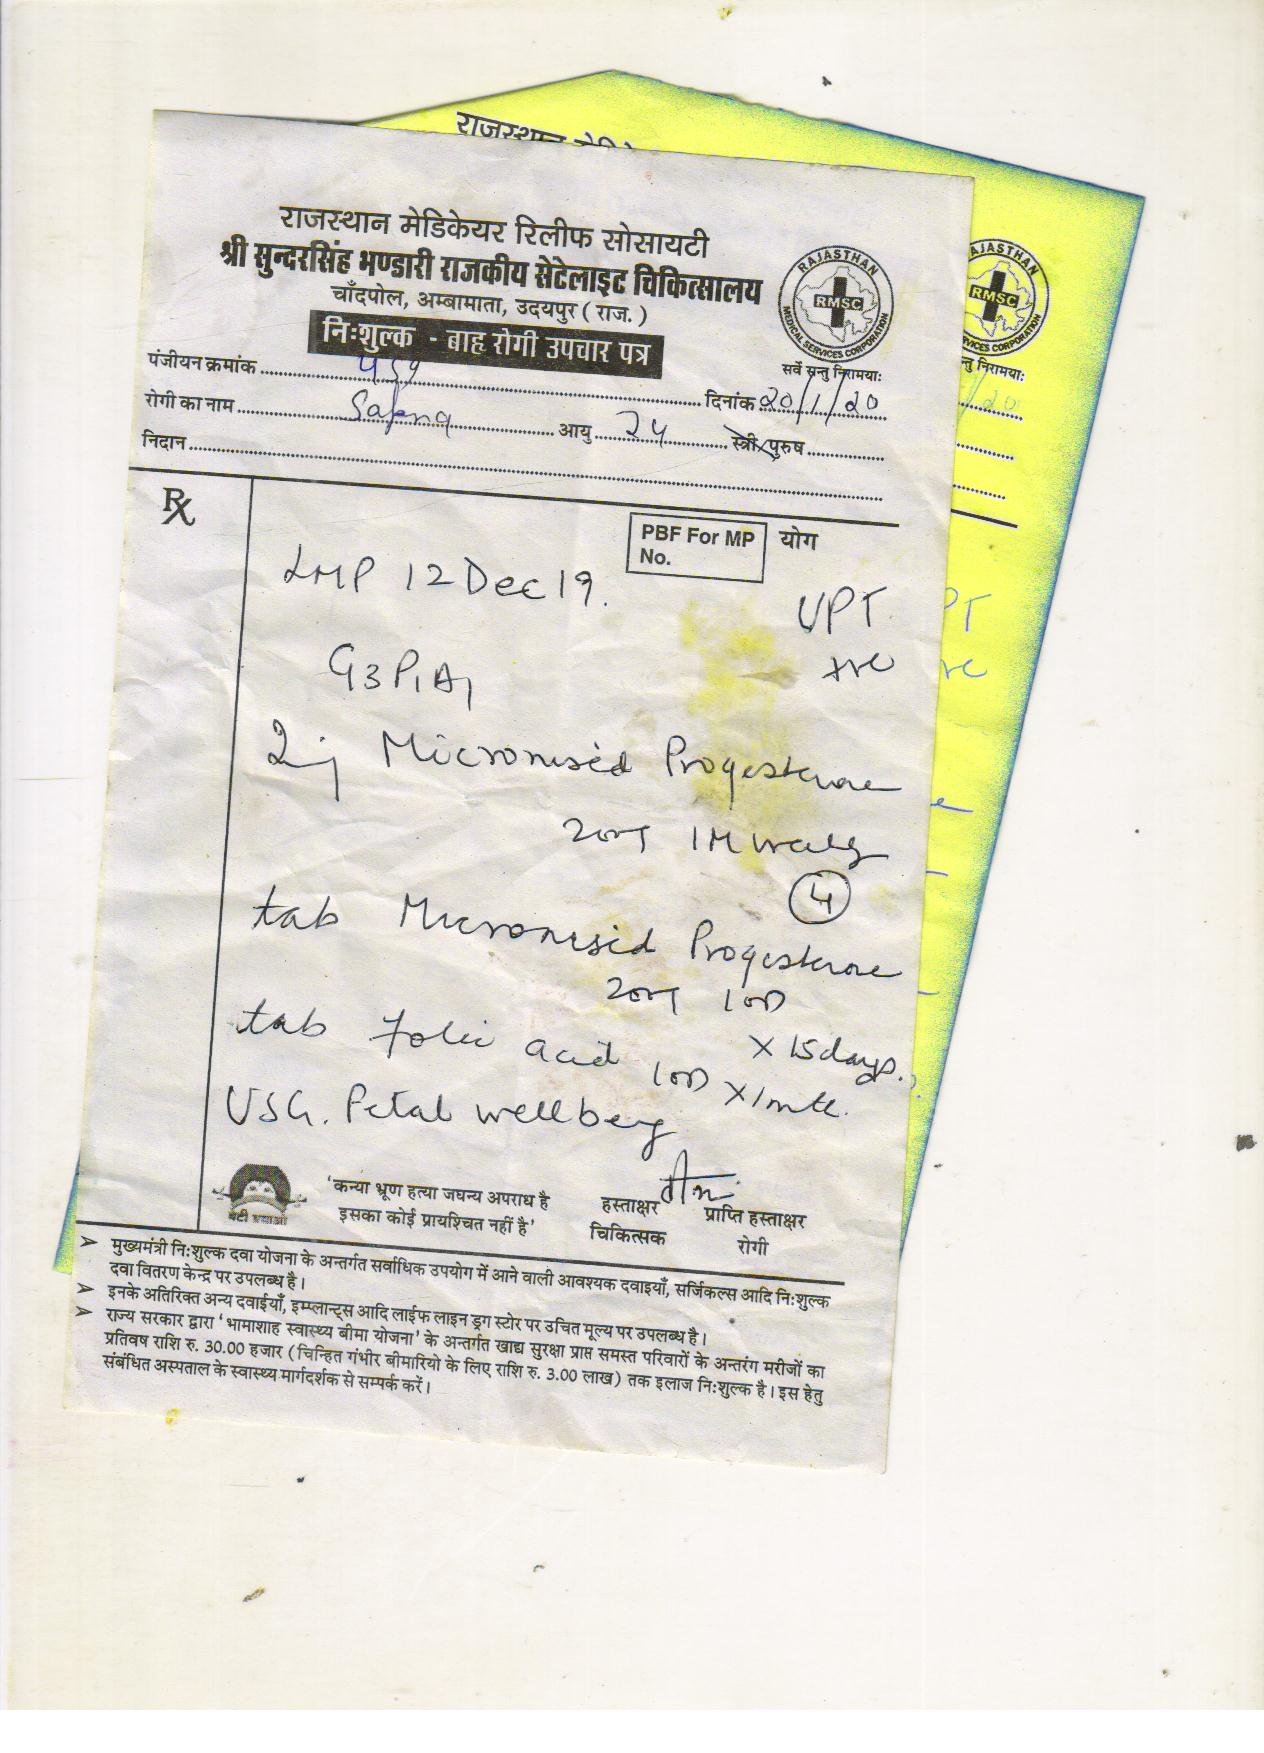 राजस्थान मेडिके
राजस्थान मेडिकेयर रिलीफ सोसायटी
श्री सुन्दरसिंह भण्डारी राजकीय सेटेलाइट चिकित्सालय
चाँदपोल, अम्बामाता, उदयपुर ( राज. )
निःशुल्क - बाह्य रोगी उपचार पत्र
RAJASTHAN
RMSC
MEDICAL SERVICES CORPORATION
सर्वे सन्तु निरामयाः
AJASTHAN
RMSC
VICES CORPORATION
न्तु निरामयाः
पंजीयन क्रमांक
दिनांक 20/1/20
/20
रोगी का नाम Sapna आयु 24 स्त्री/पुरुष
निदान
Rx
PBF For MP
No.
योग
LMP 12 Dec 19.
UPT
PT
+ve
ve
G3P1A1
Inj Micronised Progesterone
200mg IM weekly
4
tab Micronised Progesterone
200mg 1 OD
x 15 days.
tab folic acid 1 OD x 1 mth.
USG. Fetal wellbeing
बेटी बचाओ
'कन्या भ्रूण हत्या जघन्य अपराध है
इसका कोई प्रायश्चित नहीं है'
हस्ताक्षर
चिकित्सक
प्राप्ति हस्ताक्षर
रोगी
➢ मुख्यमंत्री निःशुल्क दवा योजना के अन्तर्गत सर्वाधिक उपयोग में आने वाली आवश्यक दवाइयाँ, सर्जिकल्स आदि निःशुल्क
दवा वितरण केन्द्र पर उपलब्ध है।
➢ इनके अतिरिक्त अन्य दवाईयाँ, इम्प्लान्ट्स आदि लाईफ लाइन ड्रग स्टोर पर उचित मूल्य पर उपलब्ध है।
➢ राज्य सरकार द्वारा 'भामाशाह स्वास्थ्य बीमा योजना' के अन्तर्गत खाद्य सुरक्षा प्राप्त समस्त परिवारों के अन्तरंग मरीजों का
प्रतिवष राशि रु. 30.00 हजार ( चिन्हित गंभीर बीमारियो के लिए राशि रु. 3.00 लाख ) तक इलाज निःशुल्क है। इस हेतु
संबंधित अस्पताल के स्वास्थ्य मार्गदर्शक से सम्पर्क करें।